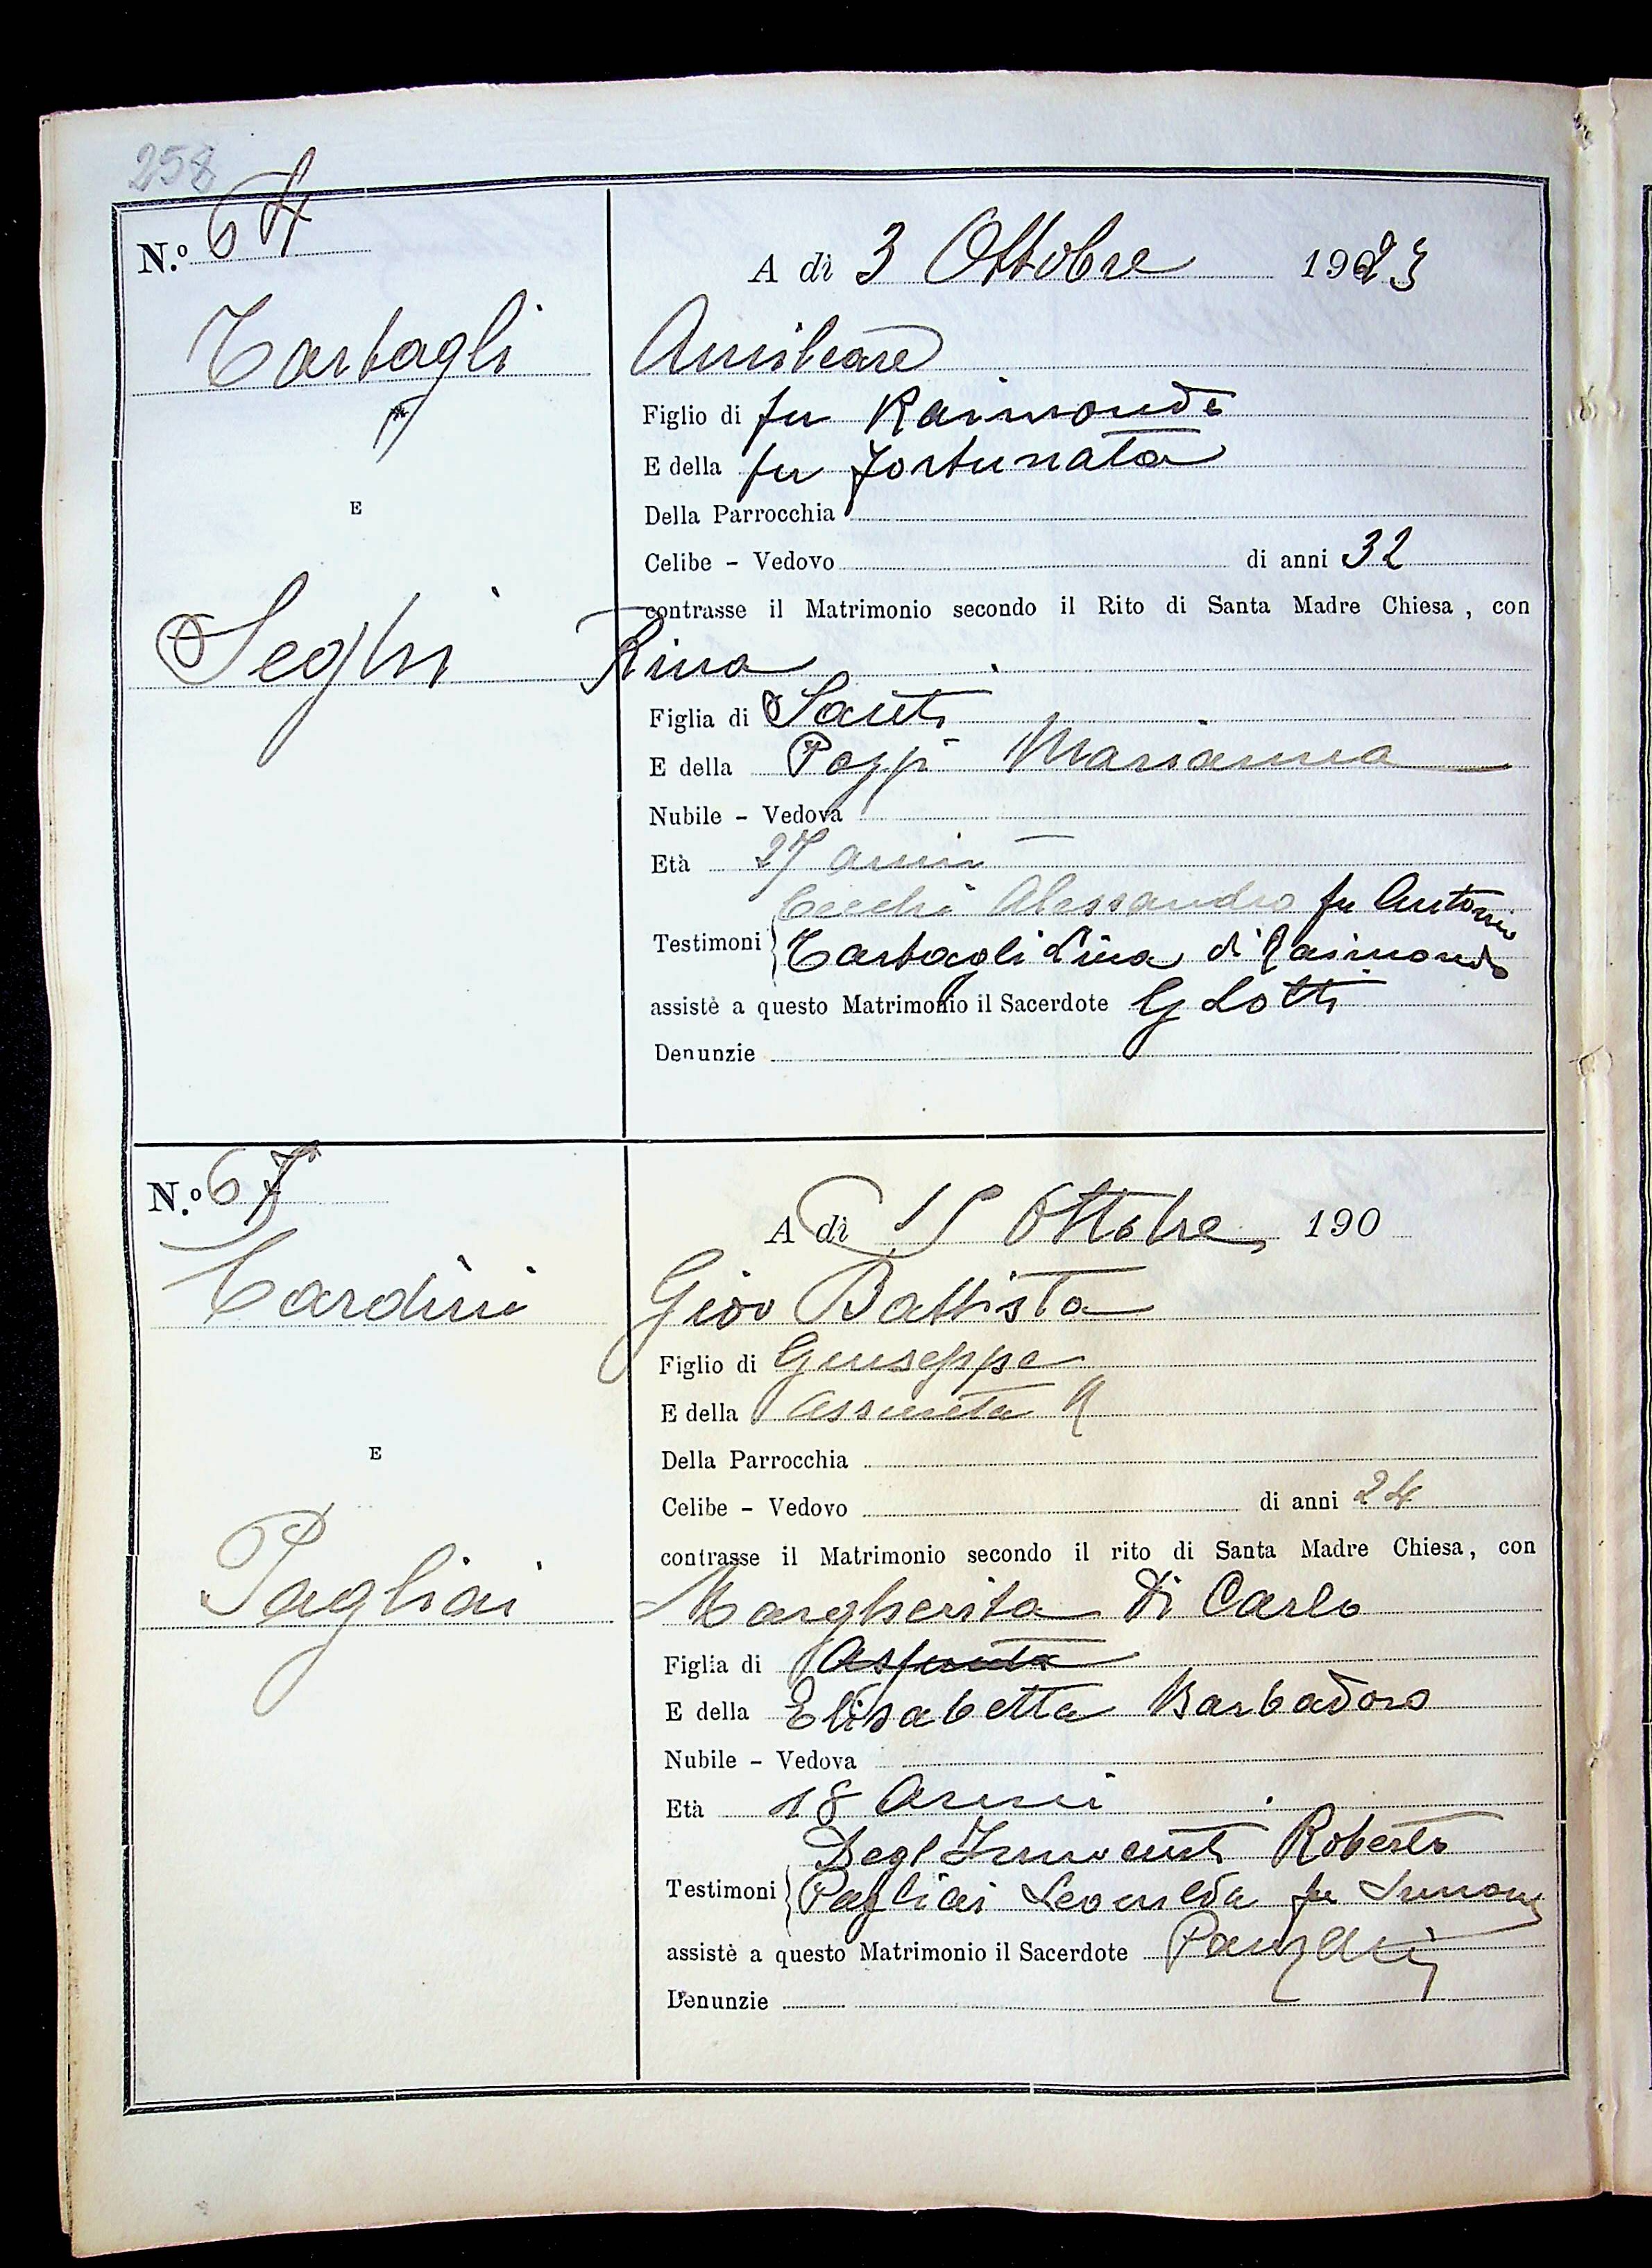 258
N.º 64
A dì 3 Ottobre 1923
Tartagli
Amilcare
Figlio di fu Raimondo
E della fu Fortunata
E
Della Parrocchia
Celibe - Vedovo di anni 32
contrasse il Matrimonio secondo il Rito di Santa Madre Chiesa, con
Seghi Rina
Figlia di Santi
E della Pozzi Marianna
Nubile - Vedova
Età 27 anni
Cecchi Alessandro fu Antonio
Testimoni Tartagli Lina di Raimondo
assistè a questo Matrimonio il Sacerdote G Lotti
Denunzie
N.º 67
A dì 15 Ottobre 190
Cardini
Giov Battista
Figlio di Giuseppe
E della Assunta
E
Della Parrocchia
Celibe - Vedovo di anni 24
contrasse il Matrimonio secondo il rito di Santa Madre Chiesa, con
Pagliai
Margherita di Carlo
Figlia di
E della Elisabetta Barbadoro
Nubile - Vedova
Età 18 Anni
Degl'Innocenti Roberto
Testimoni Pagliai Leonilda fu
assistè a questo Matrimonio il Sacerdote
Denunzie